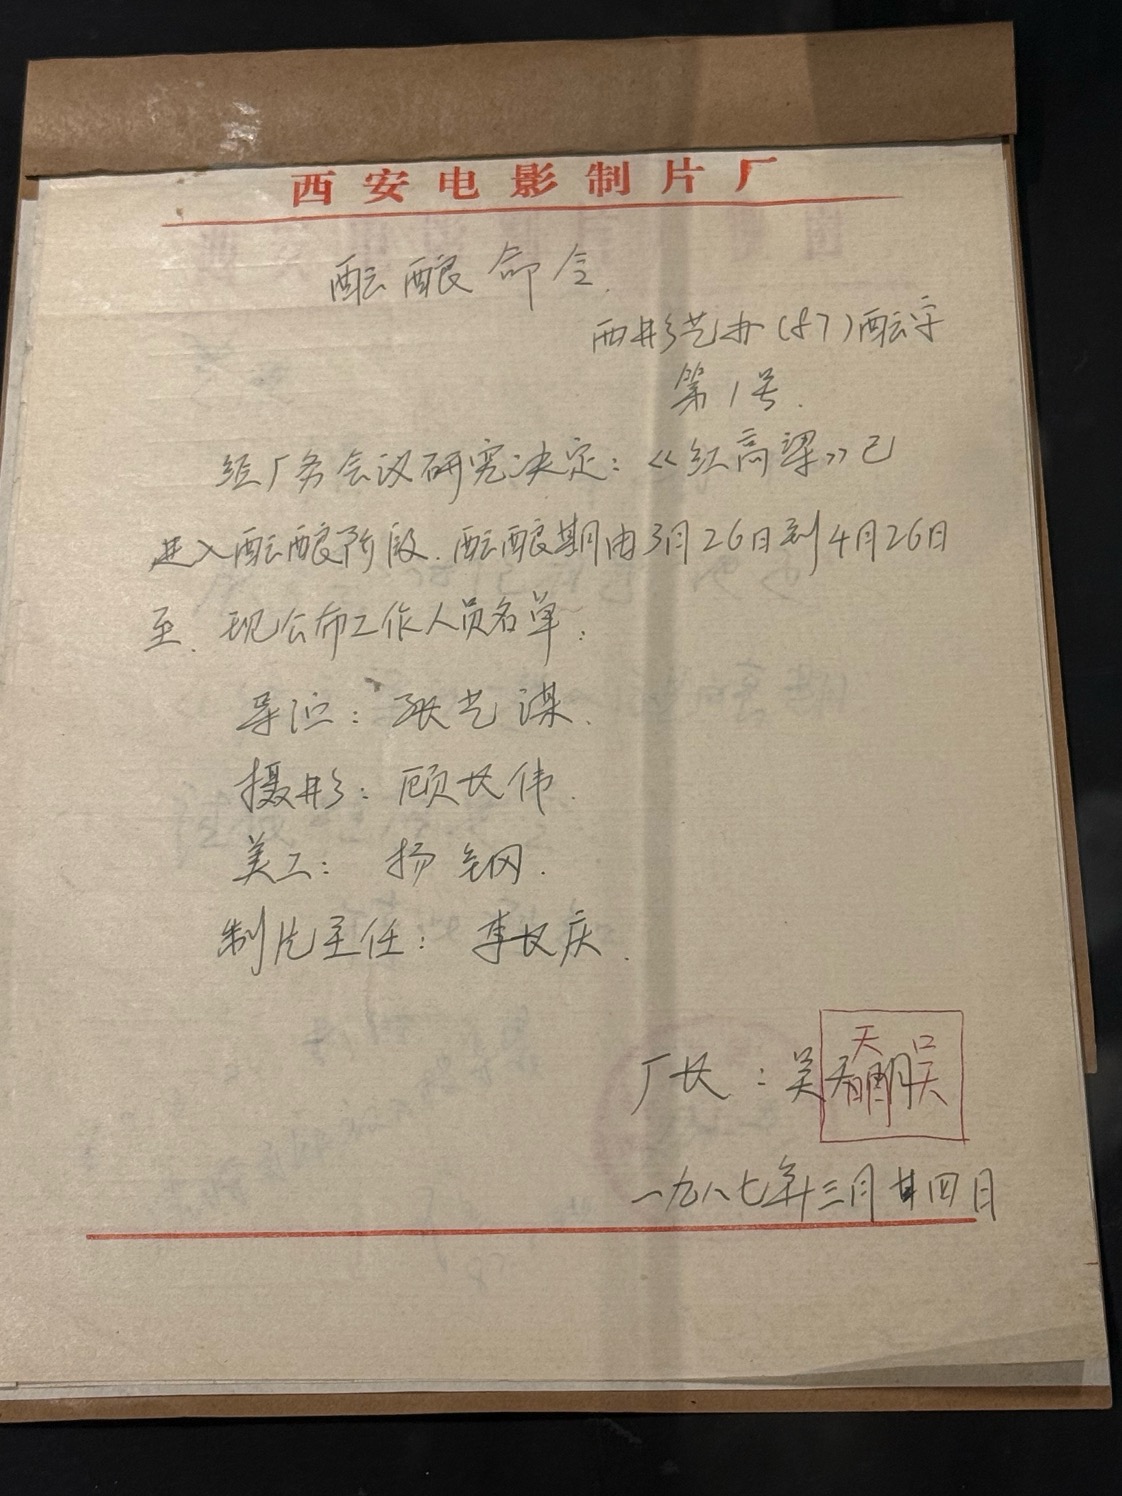 西安电影制片厂
酝酿命令.
西影艺办(87)酝字
第1号.
经厂务会议研究决定：《红高梁》已
进入酝酿阶段.酝酿期由3月26日到4月26日
至.现公布工作人员名单：
导演：张艺谋.
摄影：顾长伟.
美工：杨钢.
制片主任：李长庆.
厂长：吴天明
吴天明
一九八七年三月廿四日